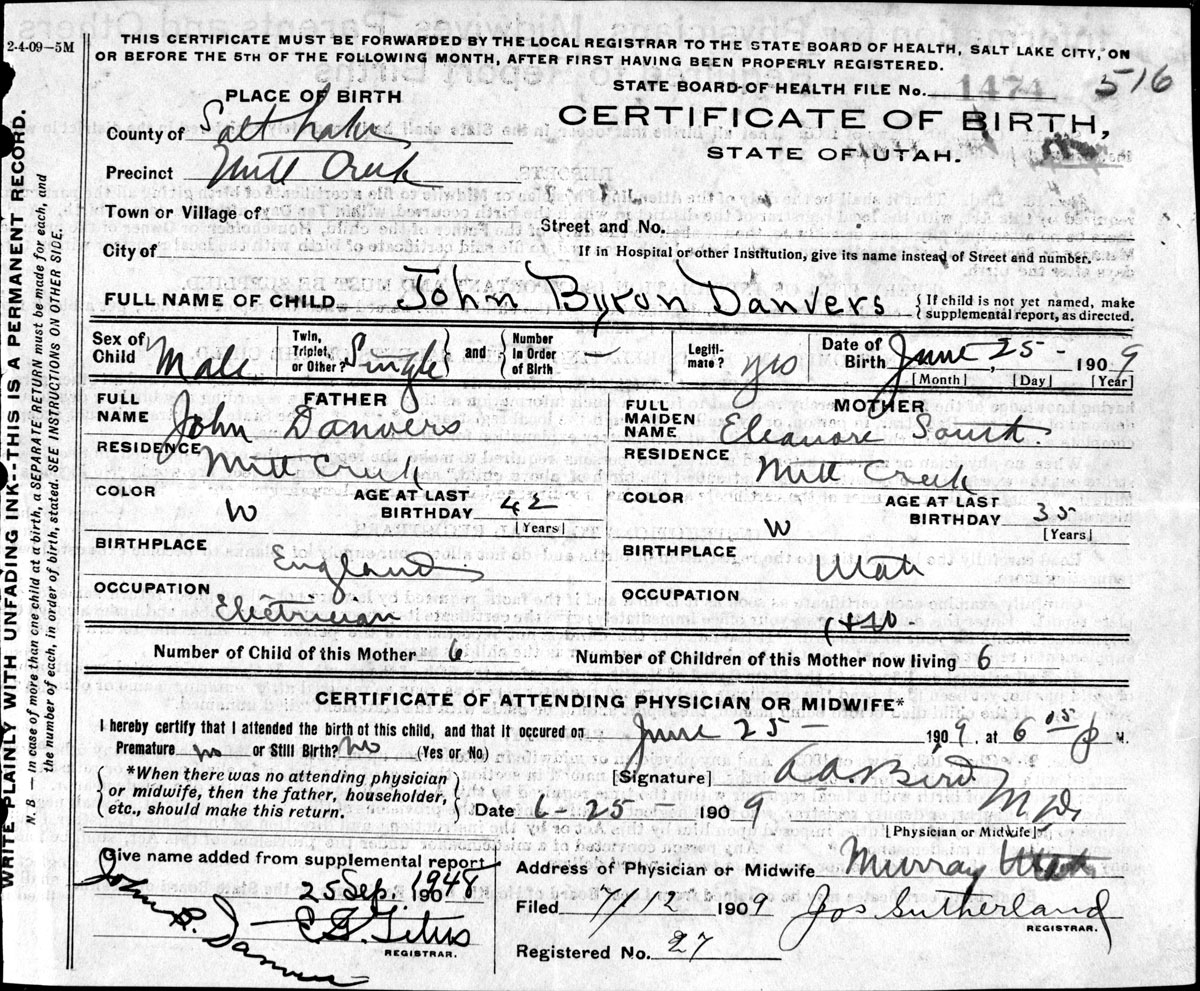 2-4-09—5M
THIS CERTIFICATE MUST BE FORWARDED BY THE LOCAL REGISTRAR TO THE STATE BOARD OF HEALTH, SALT LAKE CITY, ON
OR BEFORE THE 5TH OF THE FOLLOWING MONTH, AFTER FIRST HAVING BEEN PROPERLY REGISTERED.
STATE BOARD OF HEALTH FILE No. 1474 516
PLACE OF BIRTH
CERTIFICATE OF BIRTH,
STATE OF UTAH.
County of Salt Lake
Precinct Mill Creek
Town or Village of
Street and No.
City of
If in Hospital or other Institution, give its name instead of Street and number.
FULL NAME OF CHILD John Byron Danvers { If child is not yet named, make
supplemental report, as directed.
Sex of Child Male Twin, Triplet, or Other? Single } and { Number In Order of Birth Legiti-mate? yes Date of Birth June 25 - 1909
[Month] [Day] [Year]
FATHER MOTHER
FULL NAME John Danvers FULL MAIDEN NAME Eleanore
RESIDENCE Mill Creek RESIDENCE Mill Creek
COLOR W AGE AT LAST BIRTHDAY 42 [Years] COLOR W AGE AT LAST BIRTHDAY 35 [Years]
BIRTHPLACE England BIRTHPLACE Utah
OCCUPATION Electrician OCCUPATION
Number of Child of this Mother 6 Number of Children of this Mother now living 6
CERTIFICATE OF ATTENDING PHYSICIAN OR MIDWIFE*
I hereby certify that I attended the birth of this child, and that it occured on June 25 - 1909, at 6 05 P M.
Premature no or Still Birth? No (Yes or No)
{ *When there was no attending physician
or midwife, then the father, householder,
etc., should make this return. }
[Signature] Bird M.D.
Date 6-25- 1909
[Physician or Midwife]
Give name added from supplemental report
25 Sep. 1948 190
John B. Danvers
E.G. Titus
REGISTRAR.
Address of Physician or Midwife Murray Utah
Filed 7/12 1909 Jos Sutherland
REGISTRAR.
Registered No. 27
WRITE PLAINLY WITH UNFADING INK--THIS IS A PERMANENT RECORD.
N. B. — in case of more than one child at a birth, a SEPARATE RETURN must be made for each, and
the number of each, in order of birth, stated. SEE INSTRUCTIONS ON OTHER SIDE.